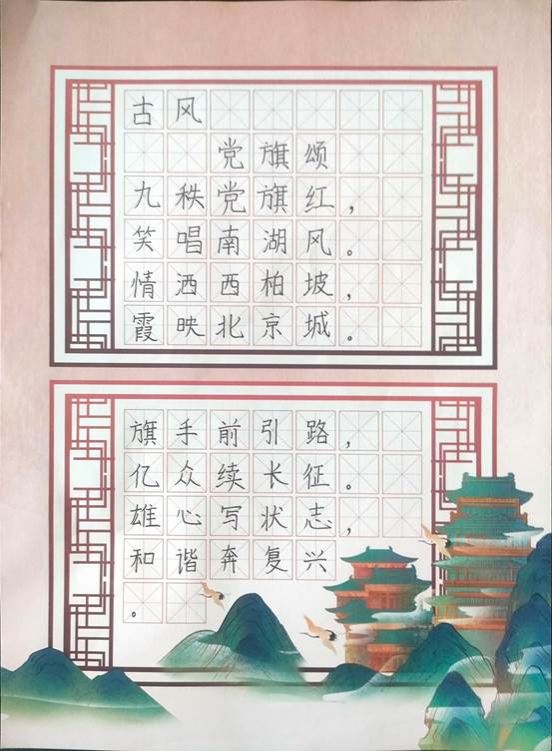 古风
党旗颂
九秩党旗红，
笑唱南湖风。
情洒西柏坡，
霞映北京城。
旗手前引路，
亿众续长征。
雄心写状志，
和谐奔复兴
。